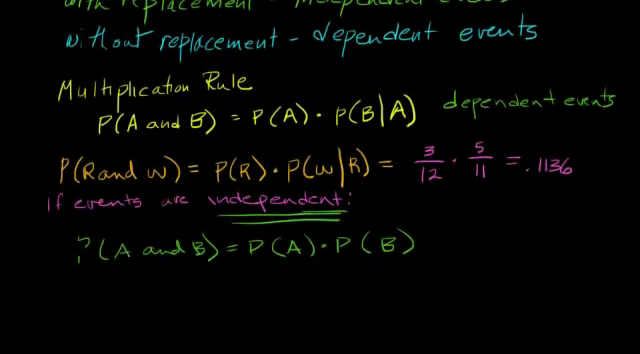 with replacement - independent events
without replacement - dependent events
Multiplication Rule
P(A and B) = P(A) · P(B|A) dependent events
P(R and W) = P(R) · P(W|R) = 3/12 · 5/11 = .1136
If events are independent:
P(A and B) = P(A) · P(B)